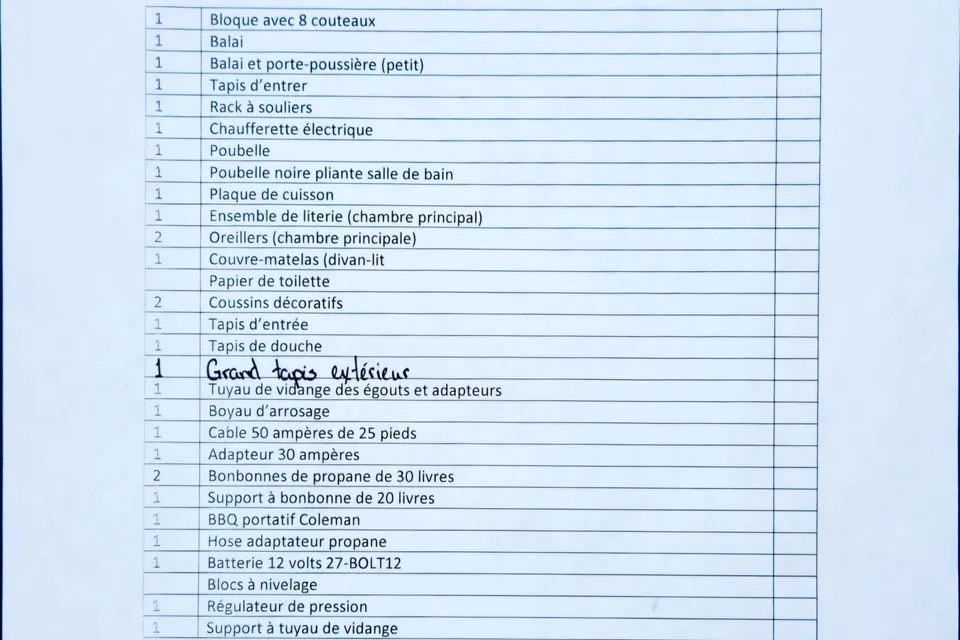 1 Bloque avec 8 couteaux
1 Balai
1 Balai et porte-poussière (petit)
1 Tapis d'entrer
1 Rack à souliers
1 Chaufferette électrique
1 Poubelle
1 Poubelle noire pliante salle de bain
1 Plaque de cuisson
1 Ensemble de literie (chambre principal)
2 Oreillers (chambre principale)
1 Couvre-matelas (divan-lit
Papier de toilette
2 Coussins décoratifs
1 Tapis d'entrée
1 Tapis de douche
1 Grand tapis extérieur
1 Tuyau de vidange des égouts et adapteurs
1 Boyau d'arrosage
1 Cable 50 ampères de 25 pieds
1 Adapteur 30 ampères
2 Bonbonnes de propane de 30 livres
1 Support à bonbonne de 20 livres
1 BBQ portatif Coleman
1 Hose adaptateur propane
1 Batterie 12 volts 27-BOLT12
Blocs à nivelage
1 Régulateur de pression
1 Support à tuyau de vidange